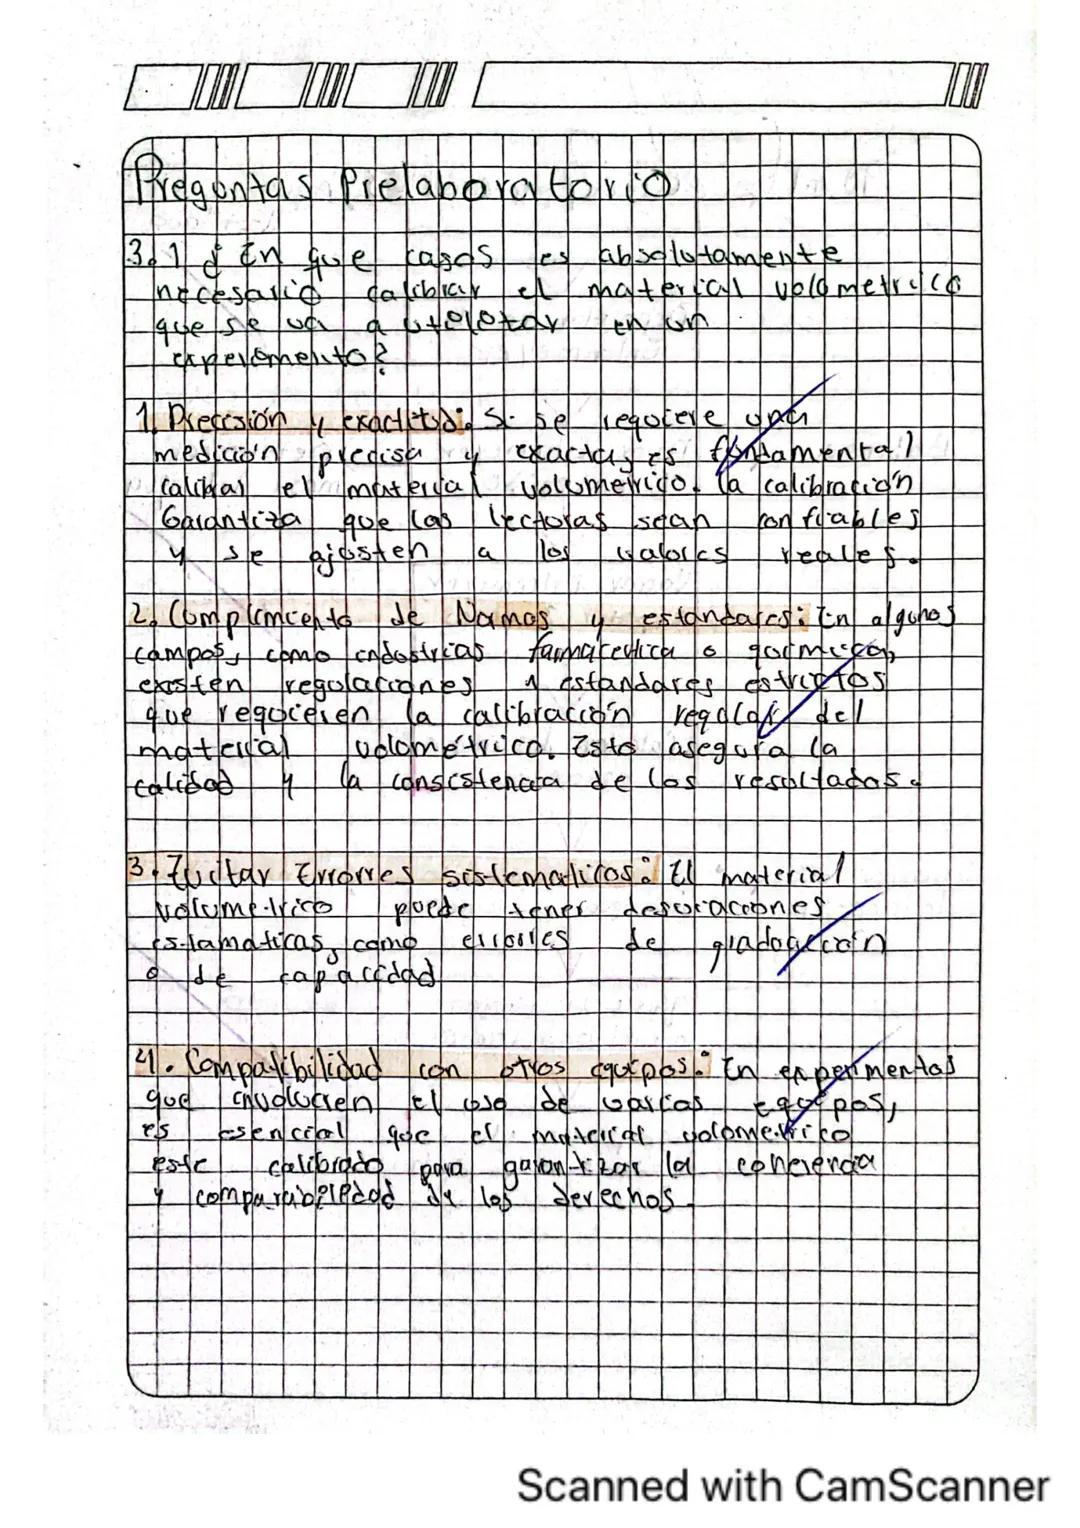 Preguntas Prelaboratorio
3.1 ¿En que casos es absolutamente
necesario calibrar el material volumetrico
que se va a utilizar en un
experimento?
1. Precisión y exactitud: Si se requiere una
medición precisa y exacta, es fundamental
calibrar el material volumetrico. la calibración
Garantiza que las lecturas sean confiables
y se ajusten a los valores reales.
2. Cumplimiento de Normas y estandares: En algunos
campos, como industrias farmaceutica o quimica,
existen regulaciones y estandares estrictos
que requieren la calibración regular del
material volométrico. Esto asegura la
calidad y la consistencia de los resultados.
3. Evitar Errores sistematicos: El material
volumetrico puede tener desviaciones
istamaticas, como errores de graduación
o de capacidad
4. Compatibilidad con otros equipos: En experimentos
que involucren el uso de varias equipos,
es esencial que el material volometrico
este calibrado para garantizar la coherencia
y comparabilidad de los derechos.
Scanned with CamScanner